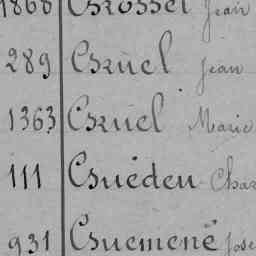 1868 Grosset Jean
289 Gruel Jean
1363 Gruel Marie
111 Guéden Char
931 Guemené Jose